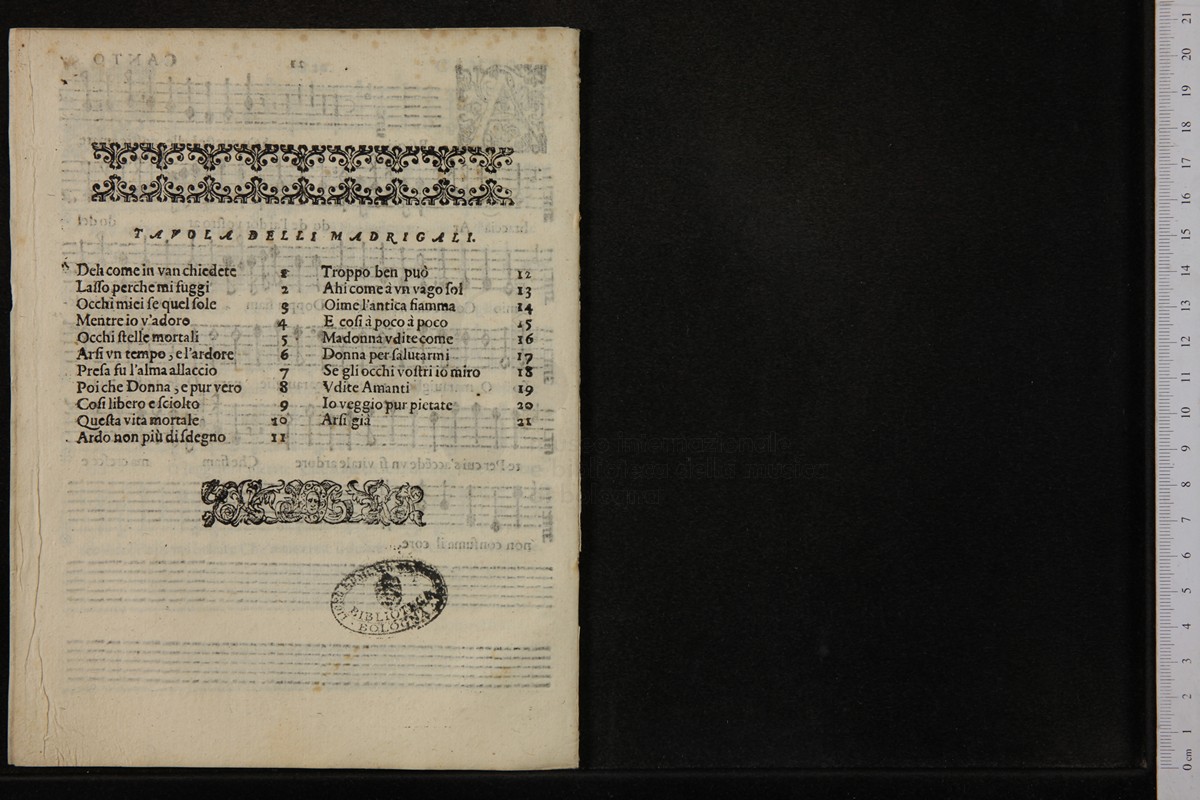 TAVOLA DELLI MADRIGALI.
Deh come in van chiedete 1
Lasso perche mi fuggi 2
Occhi miei se quel sole 3
Mentre io v'adoro 4
Occhi stelle mortali 5
Arsi vn tempo, e l'ardore 6
Presa fu l'alma allaccio 7
Poi che Donna, e pur vero 8
Cosi libero e sciolto 9
Questa vita mortale 10
Ardo non più di sdegno 11
Troppo ben può 12
Ahi come à vn vago sol 13
Oime l'antica fiamma 14
E cosi à poco à poco 15
Madonna vdite come 16
Donna per salutarmi 17
Se gli occhi vostri io miro 18
Vdite Amanti 19
Io veggio pur pietate 20
Arsi già 21
BIBLIOTECA
BOLOGNA